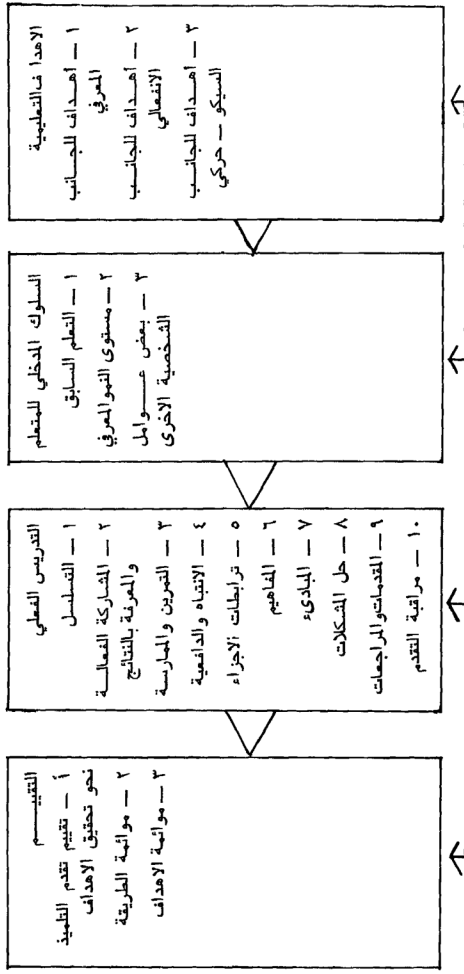 الاهدا ف التعليمية
١ – أهـداف للجـانب
المعرفي
٢ – أهـداف للجانـب
الانفعالي
٣ – أهـداف للجانـب
السيكو – حركي
السلوك المدخلي للمتعلم
١ – التعلم السابق
٢ – مستوى النمو المعرفي
٣ – بعض عـــوامل
الشخصية الاخرى
التدريس الفعلي
١ – التسلسل
٢ – المشاركة الفعالــة
٣ – التمرين والممارسة
والمعرفة بالنتائج
٤ – الانتباه والدافعية
٥ – ترابطات الاجزاء
٦ – المفاهيم
٧ – المبادىء
٨ – حل المشكلات
٩ – المقدمات والمراجعات
١٠ – مراقبة التقدم
التقييـــــم
أ – تقييم تقدم التلميذ
نحو تحقيق الاهداف
٢ – موائمة الطريقة
٣ – موائمة الاهداف